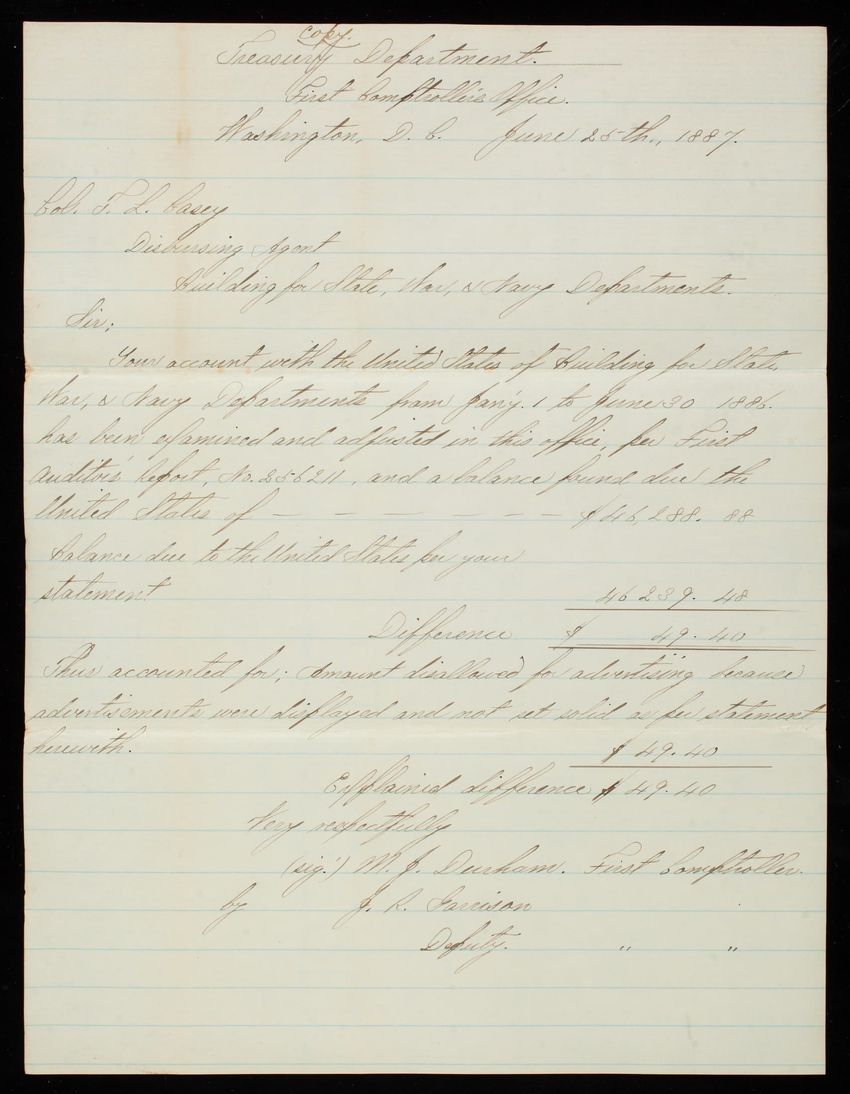 copy.
Treasury Department.
First Comptroller's Office.
Washington, D. C. June 25th., 1887.
Col. T. L. Casey
Disbursing Agent
Building for State, War, & Navy Departments.
Sir;
Your account with the United States of Building for State,
War, & Navy Departments from Jan'y. 1 to June 30 1886.
has been examined and adjusted in this office, per First
Auditor's Report, No. 256211, and a balance found due the
United States of — — — — — — — $46,288. 88
Balance due to the United States per your
statement 46 239. 48
Difference $ 49. 40
Thus accounted for; Amount disallowed for advertising because
advertisements were displayed and not set solid as per statement
herewith. $ 49. 40
Explained difference $ 49. 40
Very respectfully
(sig.') M. J. Durham. First Comptroller.
by J. R. Garrison
Deputy. " "